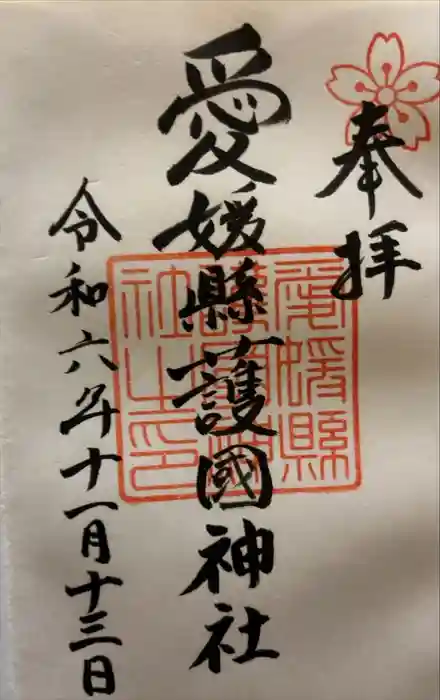 奉拝
愛媛縣護國神社
愛媛縣
護國神
社之印
令和六年十一月十三日